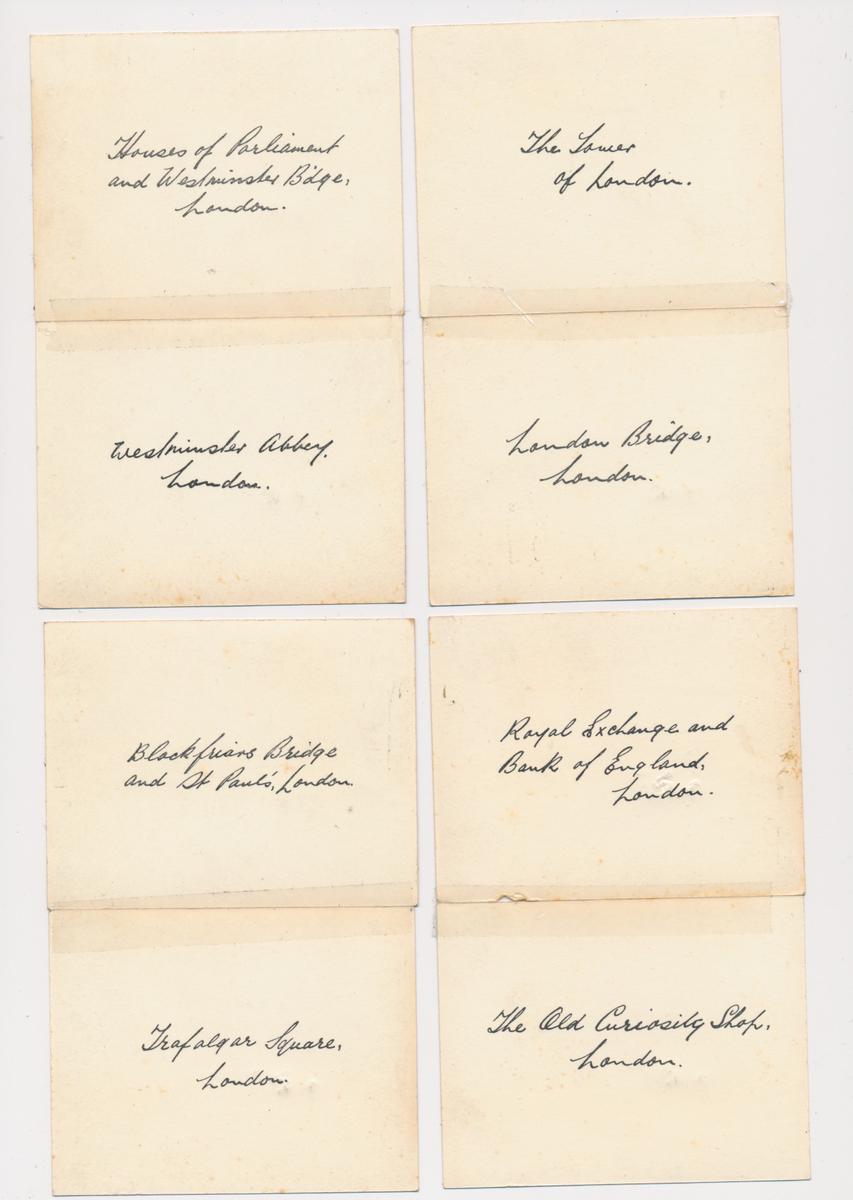 Houses of Parliament
and Westminster Bdge,
London.
The Tower
of London.
Westminster Abbey,
London.
London Bridge,
London.
Blackfriars Bridge
and St Paul's, London.
Royal Exchange and
Bank of England,
London.
Trafalgar Square,
London.
The Old Curiosity Shop,
London.